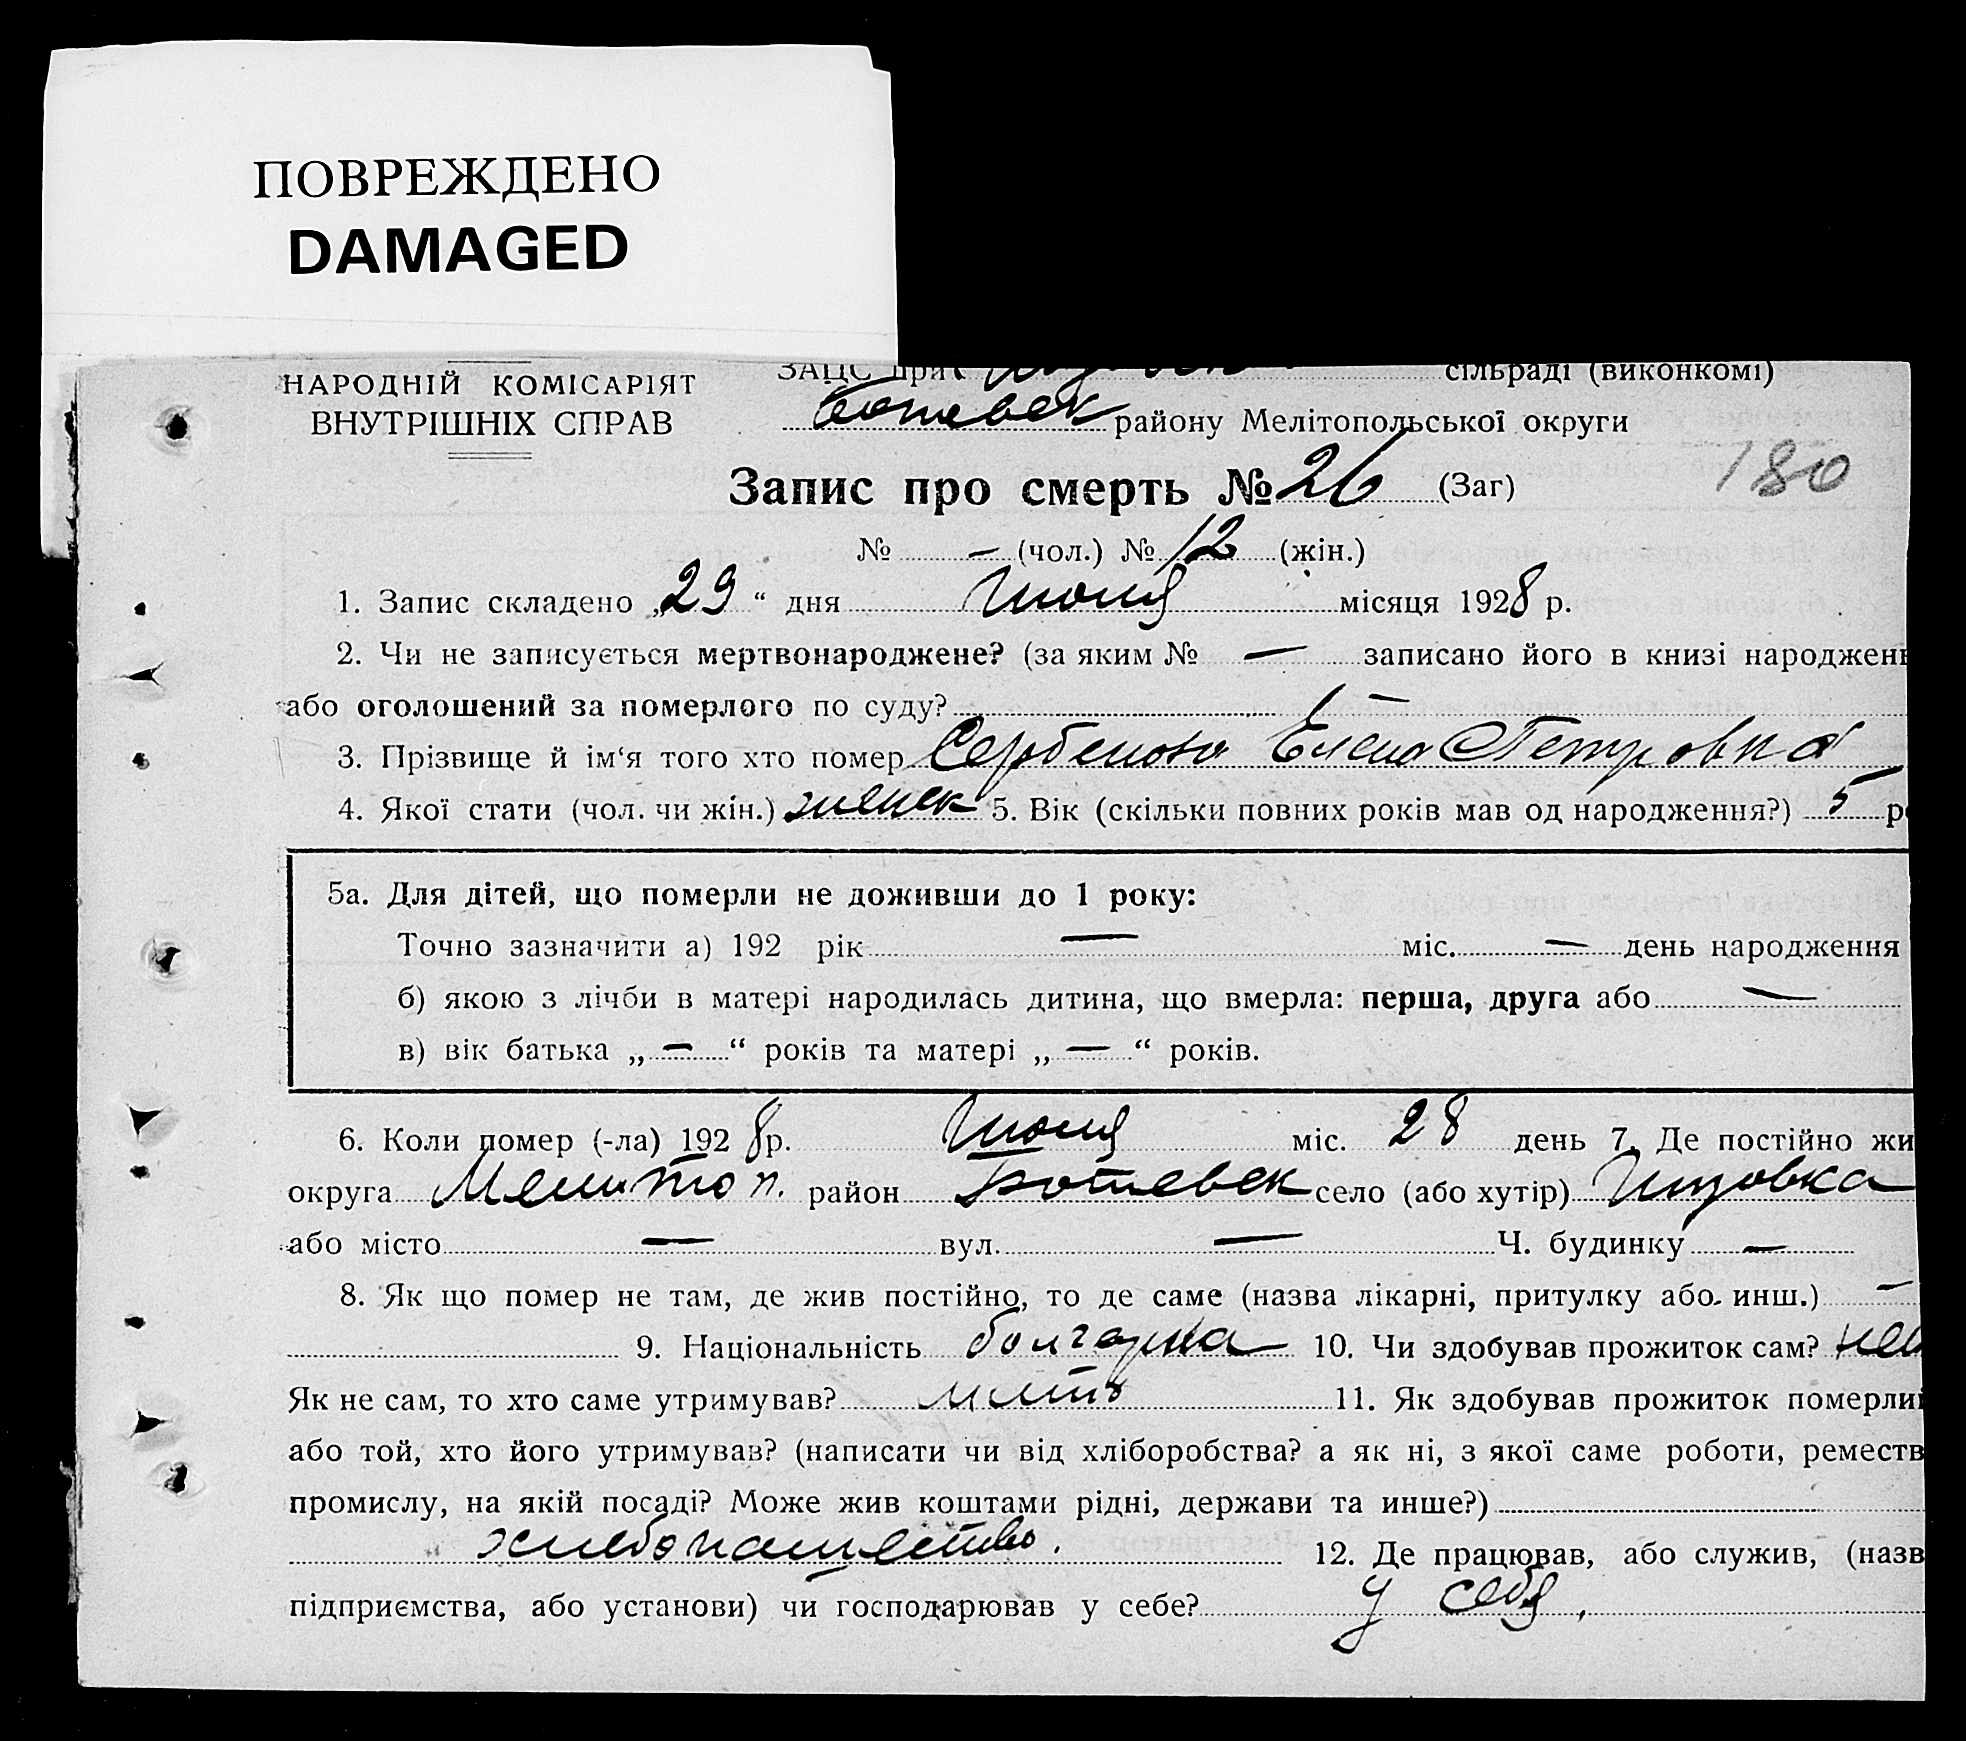 ПОВРЕЖДЕНО
DAMAGED
НАРОДНІЙ КОМІСАРІЯТ
ВНУТРІШНІХ СПРАВ
ЗАЦС при сільраді (виконкомі)
Ботиевск району Мелітопольської округи
180
Запис про смерть № 26 (Заг)
№ — (чол.) № 12 (жін.)
1. Запис складено „29“ дня Июля місяця 1928 р.
2. Чи не записується мертвонароджене? (за яким № — записано його в книзі народжень
або оголошений за померлого по суду?
3. Прізвище й ім‘я того хто помер Сербенова Елена Петровна
4. Якої стати (чол. чи жін.) женск 5. Вік (скільки повних років мав од народження?) 5 ро
5а. Для дітей, що померли не доживши до 1 року:
Точно зазначити а) 192 рік — міс. — день народження
б) якою з лічби в матері народилась дитина, що вмерла: перша, друга або —
в) вік батька „—“ років та матері „—“ років.
6. Коли помер (-ла) 1928 р. Июля міс. 28 день 7. Де постійно жи
округа Мелитоп. район Ботиевск село (або хутір)
або місто — вул. — Ч. будинку —
8. Як що помер не там, де жив постійно, то де саме (назва лікарні, притулку або инш.) —
9. Національність болгарка 10. Чи здобував прожиток сам? нет
Як не сам, то хто саме утримував? мать 11. Як здобував прожиток померлий
або той, хто його утримував? (написати чи від хліборобства? а як ні, з якої саме роботи, реместв
промислу, на якій посаді? Може жив коштами рідні, держави та инше?)
хлебопашество. 12. Де працював, або служив, (назв
підприємства, або установи) чи господарював у себе? У себя,